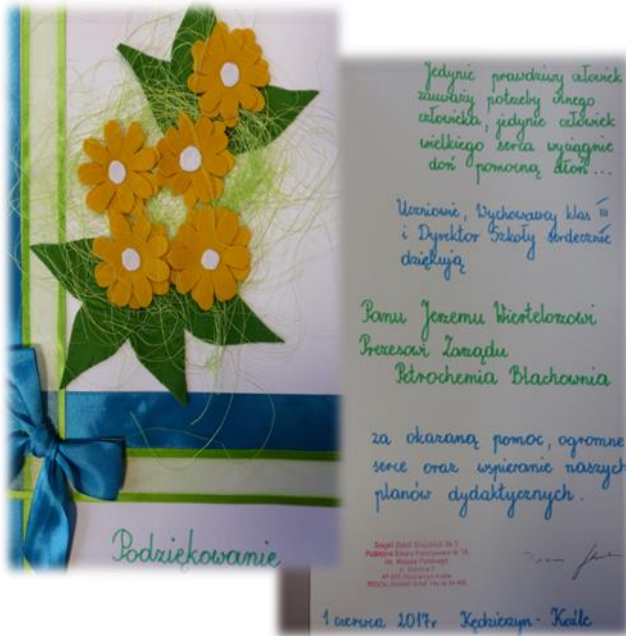 Podziękowanie
Jedynie prawdziwy człowiek
zauważy potrzeby innego
człowieka, jedynie człowiek
wielkiego serca wyciągnie
doń pomocną dłoń...
Uczniowie, Wychowawcy klas III
i Dyrektor Szkoły serdecznie
dziękują
Panu Jerzemu Wiertelorzowi
Prezesowi Zarządu
Petrochemia Blachownia
za okazaną pomoc, ogromne
serce oraz wspieranie naszych
planów dydaktycznych.
Zespół Szkół Miejskich Nr 2
Publiczna Szkoła Podstawowa Nr 18
im. Wojska Polskiego
1 czerwca 2017r Kędzierzyn-Koźle